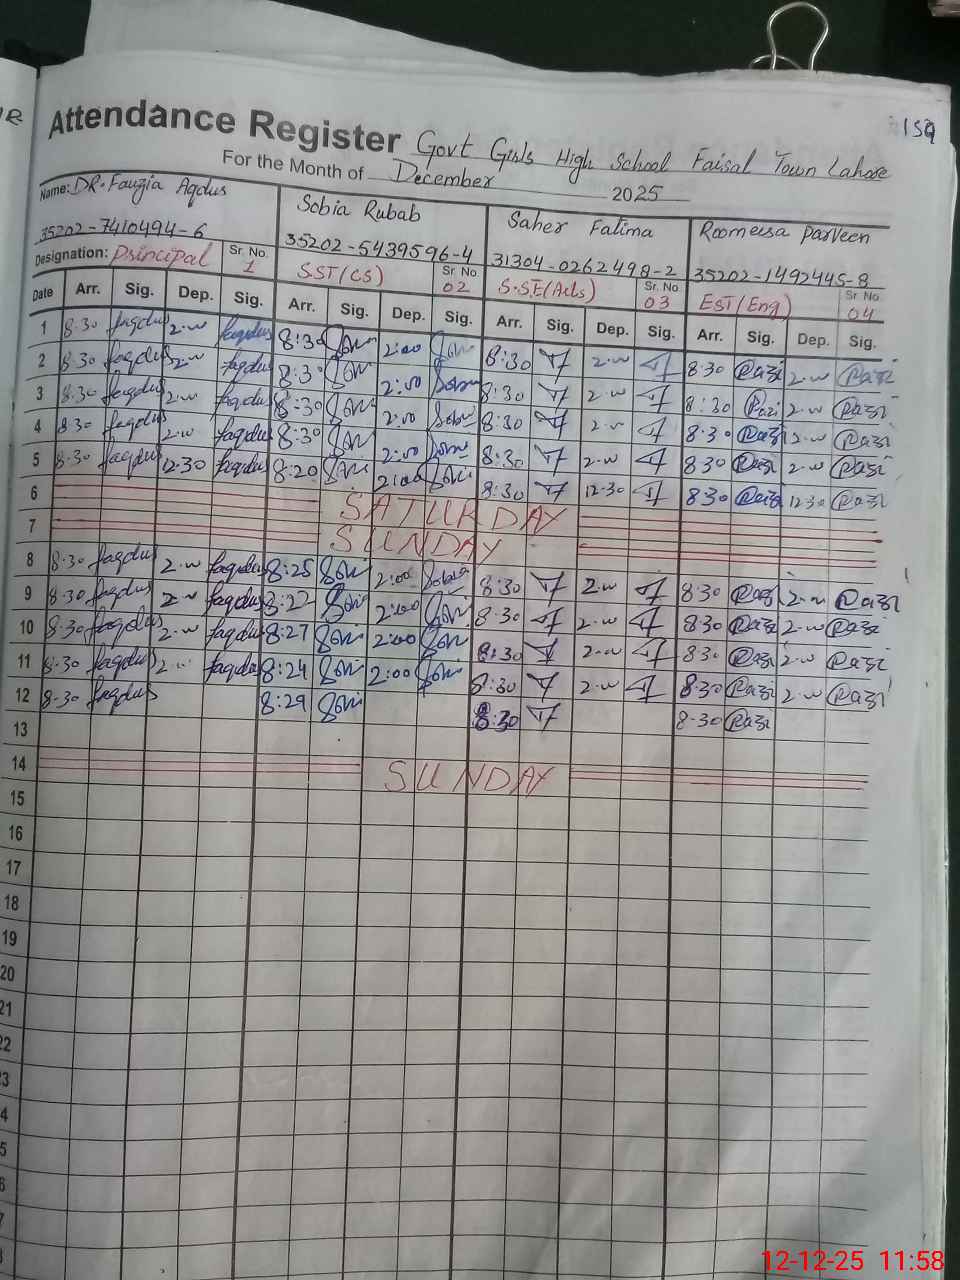 159
Attendance Register Govt Girls High School Faisal Town Lahore
For the Month of December 2025
Name: DR. Fauzia Aqdus Sobia Rubab Saher Fatima Roomeesa Parveen
35202-7410494-6 35202-5439596-4 31304-0262498-2 35202-1492445-8
Designation: Principal Sr. No. 1 SST(CS) Sr. No 02 S.S.T(Arts) Sr. No. 03 EST(Eng) Sr. No. 04
Date Arr. Sig. Dep. Sig. Arr. Sig. Dep. Sig. Arr. Sig. Dep. Sig. Arr. Sig. Dep. Sig.
1 8.30 faqdus 2.00 faqdus 8:30 2:00 8:30 2.00 8.30 Razi 2.00 Razi
2 8.30 faqdus 2.00 faqdus 8:30 2:00 8:30 2.00 8:30 Razi 2.00 Razi
3 8.30 faqdus 2.00 faqdus 8:30 2:00 8:30 2.00 8.30 Razi 2.00 Razi
4 8.30 faqdus 2.00 faqdus 8:30 2:00 8:30 2.00 8.30 Razi 2.00 Razi
5 8.30 faqdus 12.30 faqdus 8:20 2:00 8:30 12.30 8.30 Razi 12.30 Razi
6 SATURDAY
7 SUNDAY
8 8.30 faqdus 2.00 faqdus 8:25 2:00 Sobia 8:30 2.00 8.30 Razi 2.00 Razi
9 8.30 faqdus 2.00 faqdus 8:22 2:00 8:30 2.00 8.30 Razi 2.00 Razi
10 8.30 faqdus 2.00 faqdus 8:27 2:00 8:30 2.00 8.30 Razi 2.00 Razi
11 8.30 faqdus 2.00 faqdus 8:24 2:00 8:30 2.00 8.30 Razi 2.00 Razi
12 8.30 faqdus 8:29 8:30 8.30 Razi
13
14 SUNDAY
15
16
17
18
19
20
21
22
23
4
5
6
7
12-12-25 11:58